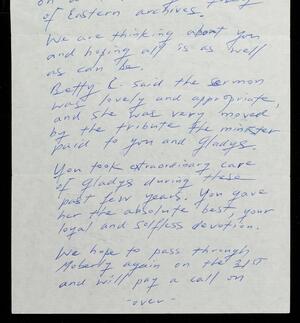 of Eastern archives.
We are thinking about you
and hoping all is as well
as can be.
Betty C. said the sermon
was lovely and appropriate,
and she was very moved
by the tribute the minister
paid to you and Gladys.
You took extraordinary care
of Gladys during these
past few years. You gave
her the absolute best, your
loyal and selfless devotion.
We hope to pass through
Moberly again on the 31st
and will pay a call on
-over-